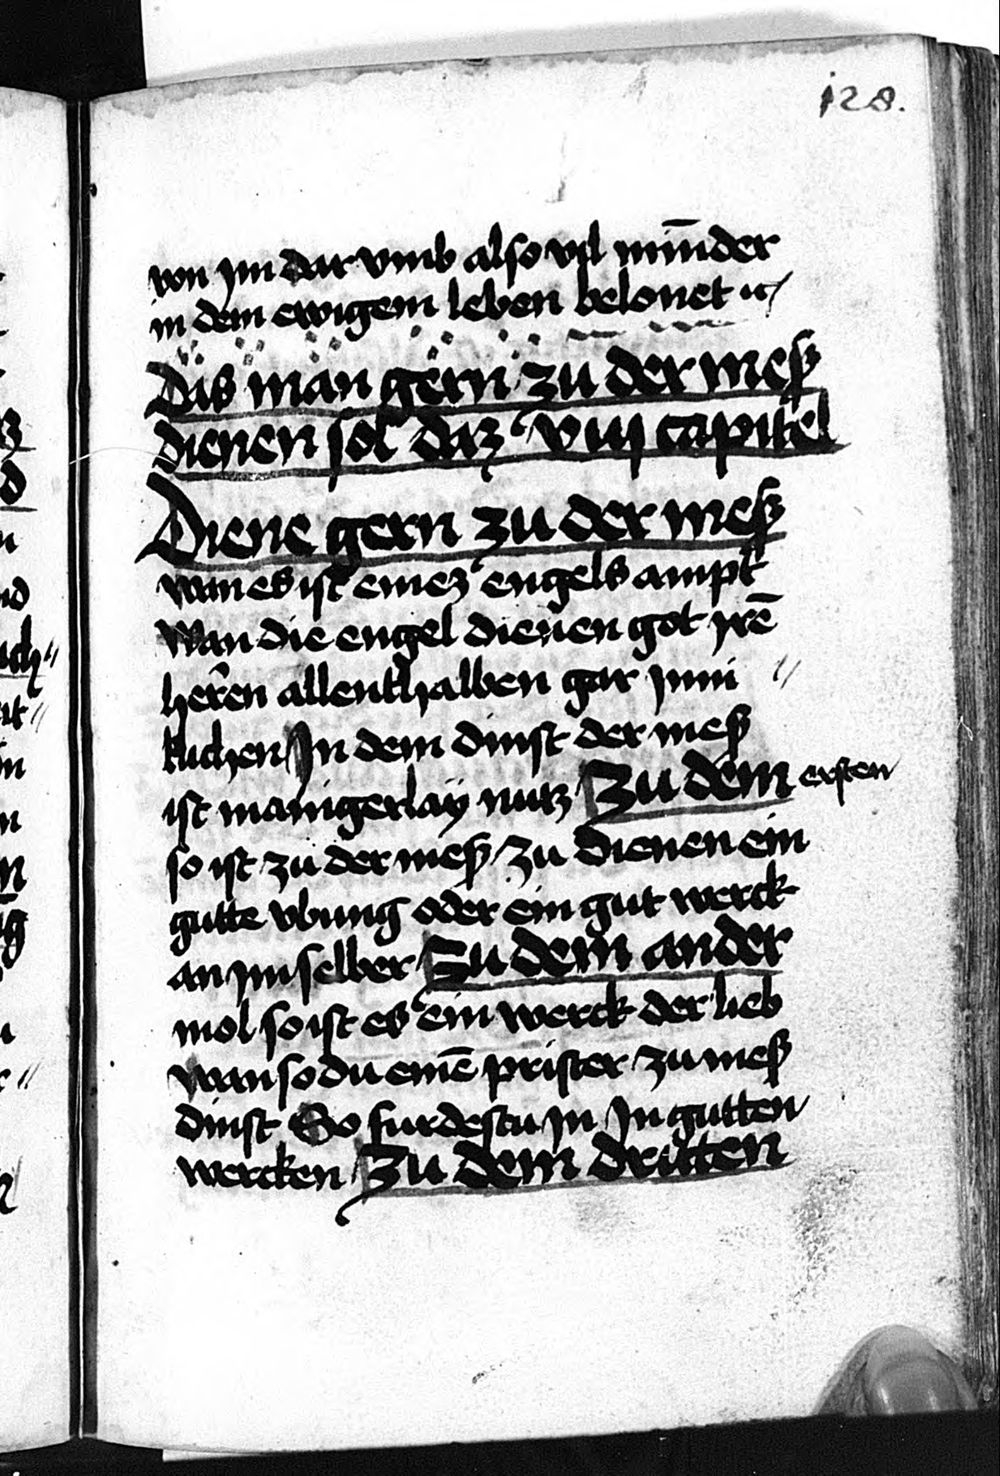 128.
von jm dar vmb also vil mīnder
in dem ewigem leben belonet
Das man gern zu der meß
dienen sol daz viij capitel
Diene gern zu der meß
wan es ist einez engels ampt
Wan die engel dienen got jrē
herren allenthalben gar jnni
klichen In dem dinst der meß
ist manigerlaÿ nutz Zu dem ersten
so ist zu der meß zu dienen ein
gutte vbung oder ein gut werck
an jm selber Zu dem ander
mol so ist es ein werck der lieb
wan so du einē prister zu meß
dinst So furdestu jn In gutten
wercken Zu dem dritten